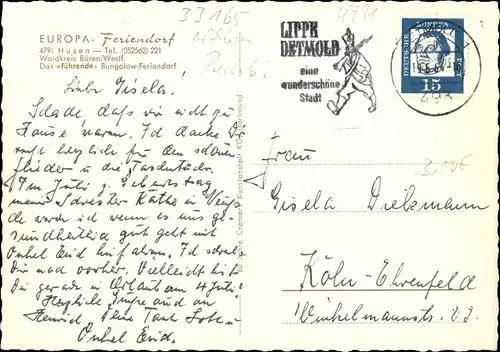 33165
4791
EUROPA - Feriendorf
4791 Husen — Tel. (052562) 221
Waldkreis Büren/Westf.
Das »führende« Bungalow-Feriendorf
LIPPE
DETMOLD
eine
wunderschöne
Stadt
DEUTSCHE BUNDESPOST
15
493
Liebe Gisela,
Schade, daß wir nicht zu
Hause waren. Ich danke Dir
recht herzlich für den schönen
Flieder u. die Taschentücher.
Im Juli z. Geburtstag
meiner Schwester Käthe in
werde ich wenn es uns ge-
sundheitlich gut geht mit
Onkel Emid hinfahren. Ich schreibe
Dir noch vorher. Vielleicht bist
Du gerade in Urlaub am 4. Juli?
Herzliche Grüße auch an
Deine Tante
Onkel Emid.
Cramers Kunstanstalt KG, Dortmund
Frau
Gisela Diekmann
Köln-Ehrenfeld
Winkelmannstr.